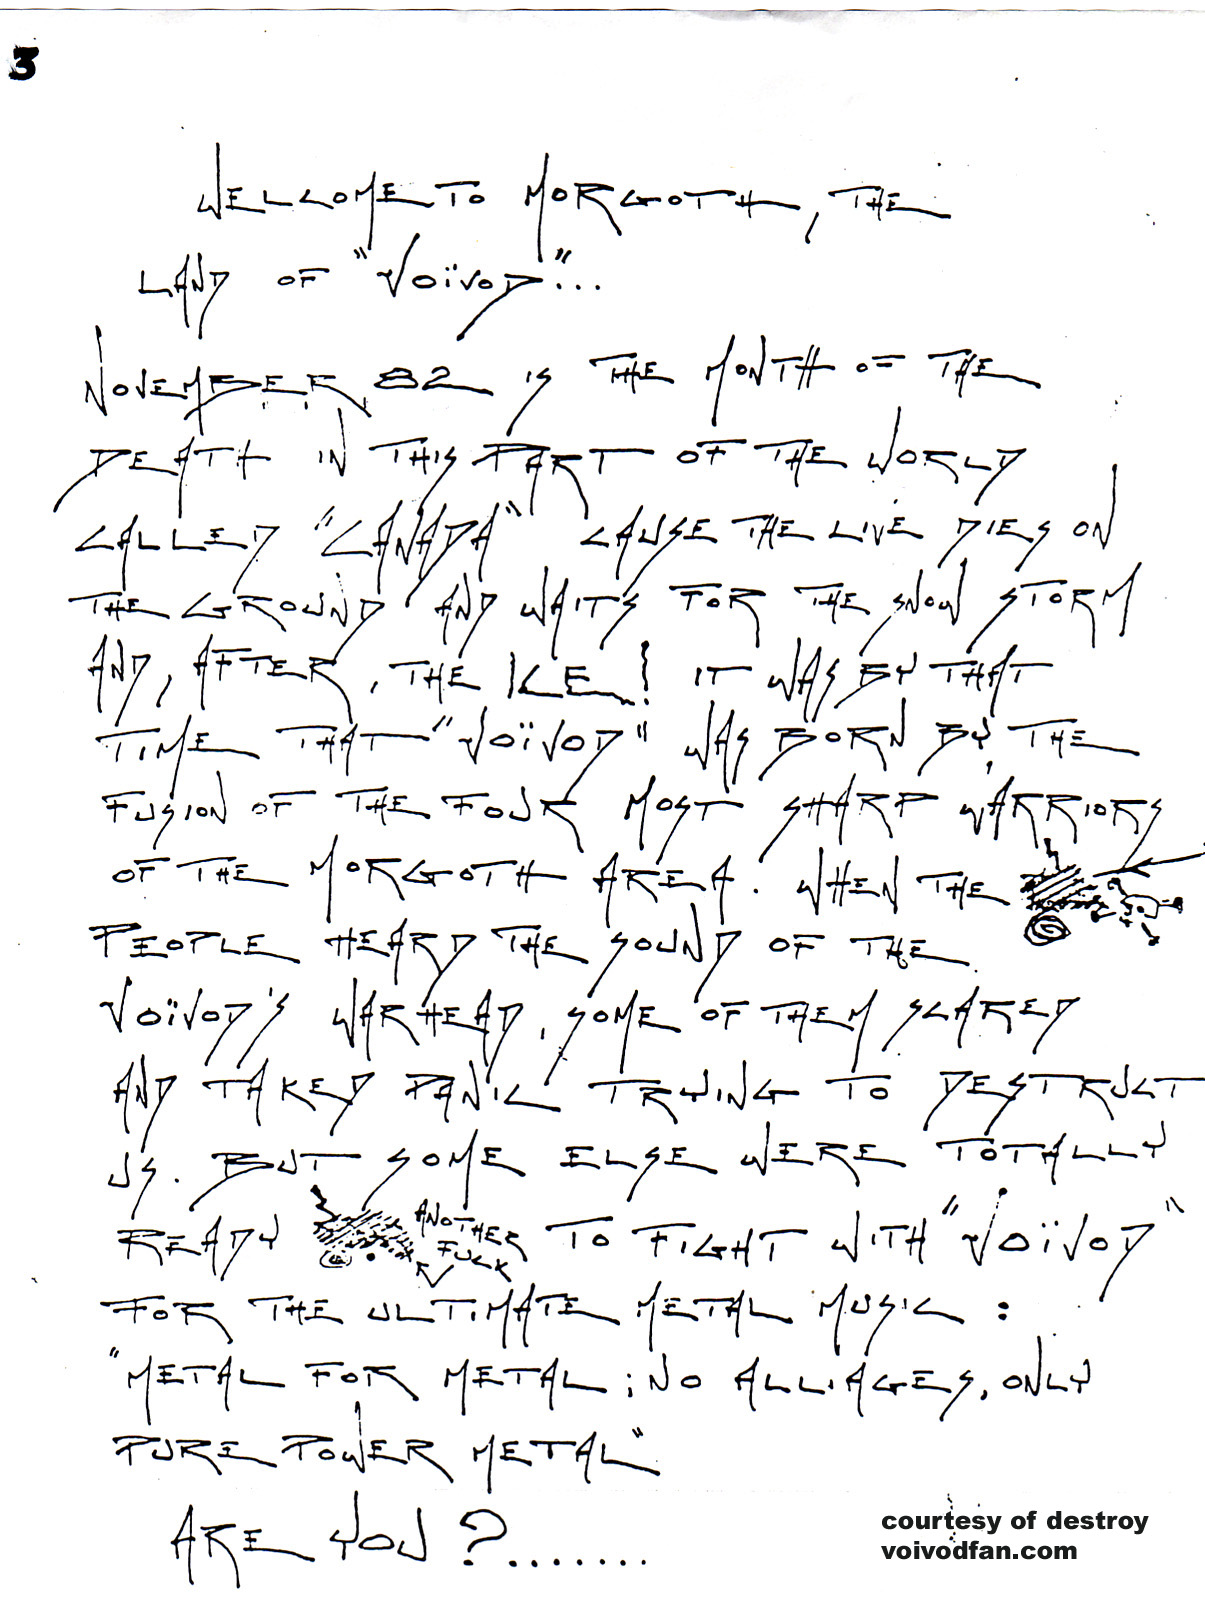 3
WELCOME TO MORGOTH, THE
LAND OF "VOÏVOD"...
NOVEMBER 82 IS THE MONTH OF THE
DEATH IN THIS PART OF THE WORLD
CALLED "CANADA" CAUSE THE LIVE DIES ON
THE GROUND AND WAITS FOR THE SNOW STORM
AND, AFTER, THE ICE! IT WAS BY THAT
TIME THAT "VOÏVOD" WAS BORN BY THE
FUSION OF THE FOUR MOST SHARP WARRIORS
OF THE MORGOTH AREA. WHEN THE
PEOPLE HEARD THE SOUND OF THE
VOÏVOD'S WARHEAD, SOME OF THEM SCARED
AND TAKED PANIC TRYING TO DESTRUCT
US. BUT SOME ELSE WERE TOTALLY
READY ANOTHER FUCK TO FIGHT WITH "VOÏVOD"
FOR THE ULTIMATE METAL MUSIC :
"METAL FOR METAL; NO ALLIAGES, ONLY
PURE POWER METAL"
ARE YOU ?.......
courtesy of destroy
voivodfan.com